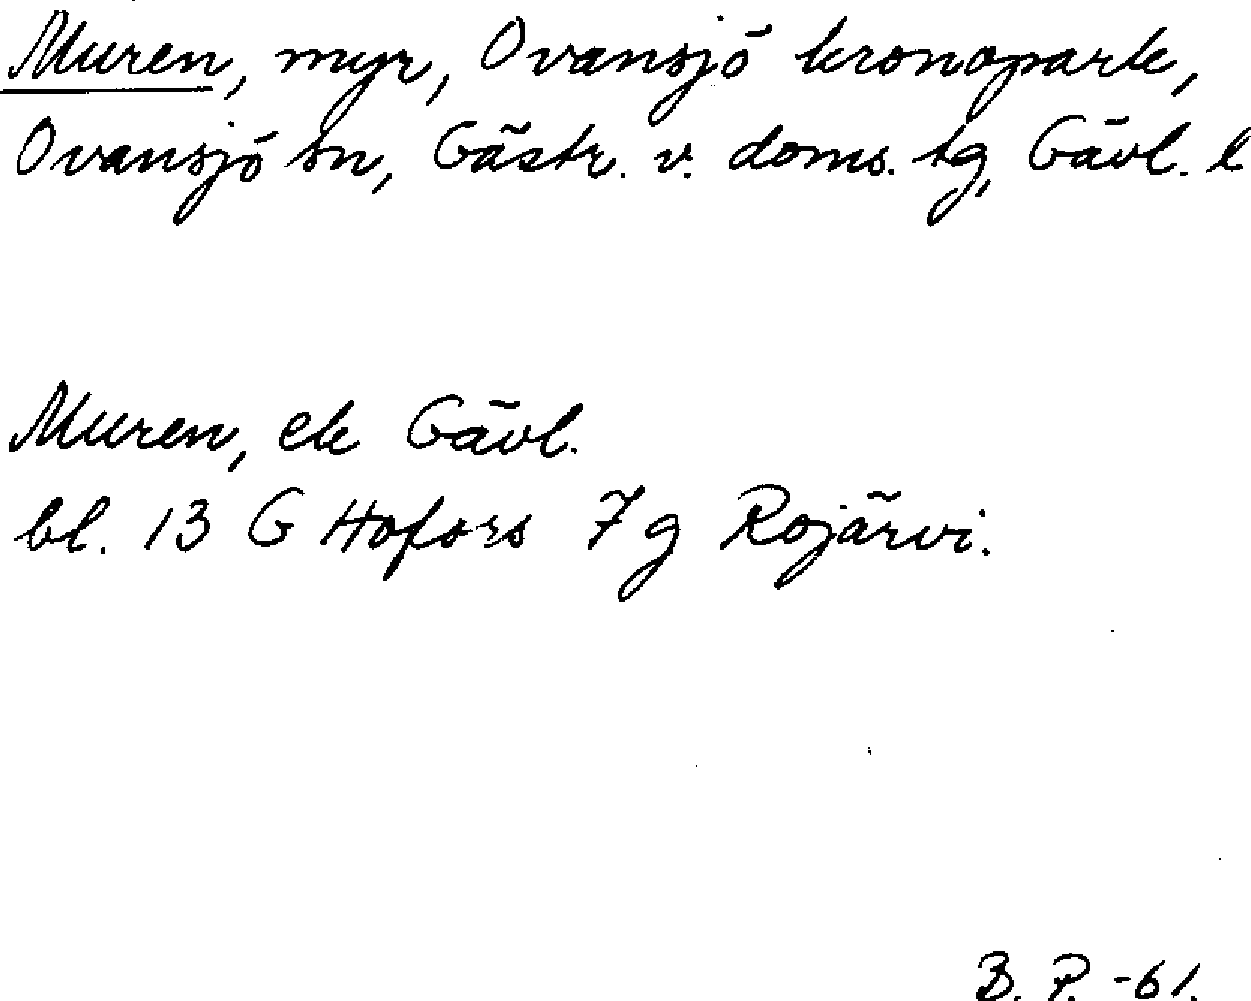 Muren, myr, Ovansjö kronopark,
Ovansjö sn, Gästr. v. doms. tg, Gävl. l
Muren, ek Gävl.
bl. 13 G Hofors 7 g Rojärvi.
B. P. -61.